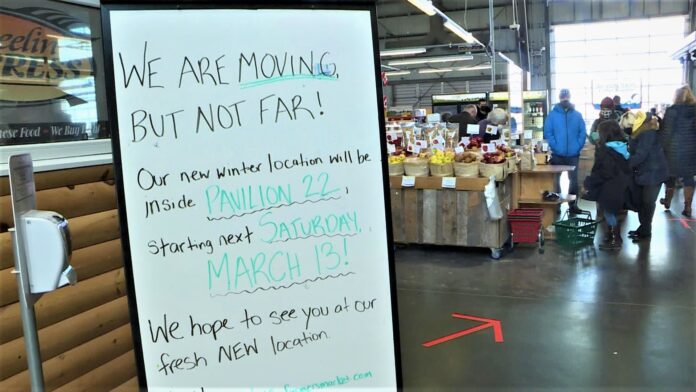 WE ARE MOVING,
BUT NOT FAR!
Our new winter location will be
inside PAVILION 22,
starting next SATURDAY,
MARCH 13!
We hope to see you at our
fresh NEW location.
We Buy